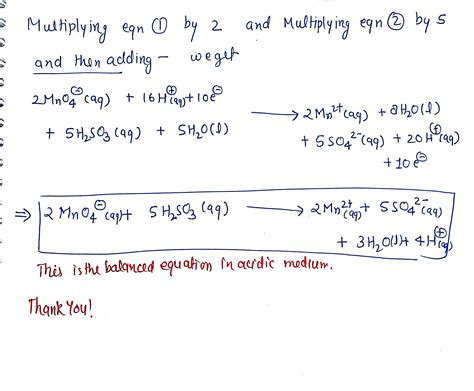 Multiplying eqn ① by 2 and Multiplying eqn ② by 5
and then adding - we get
2MnO₄⊖(aq) + 16H⊕(aq) + 10e⊖ ⟶ 2Mn²⁺(aq) + 8H₂O(l)
+ 5H₂SO₃(aq) + 5H₂O(l) + 5SO₄²⁻(aq) + 20H⊕(aq)
+ 10e⊖
⇒ 2MnO₄⊖(aq) + 5H₂SO₃(aq) ⟶ 2Mn²⁺(aq) + 5SO₄²⁻(aq)
+ 3H₂O(l) + 4H⊕(aq)
This is the balanced equation in acidic medium.
Thank You!